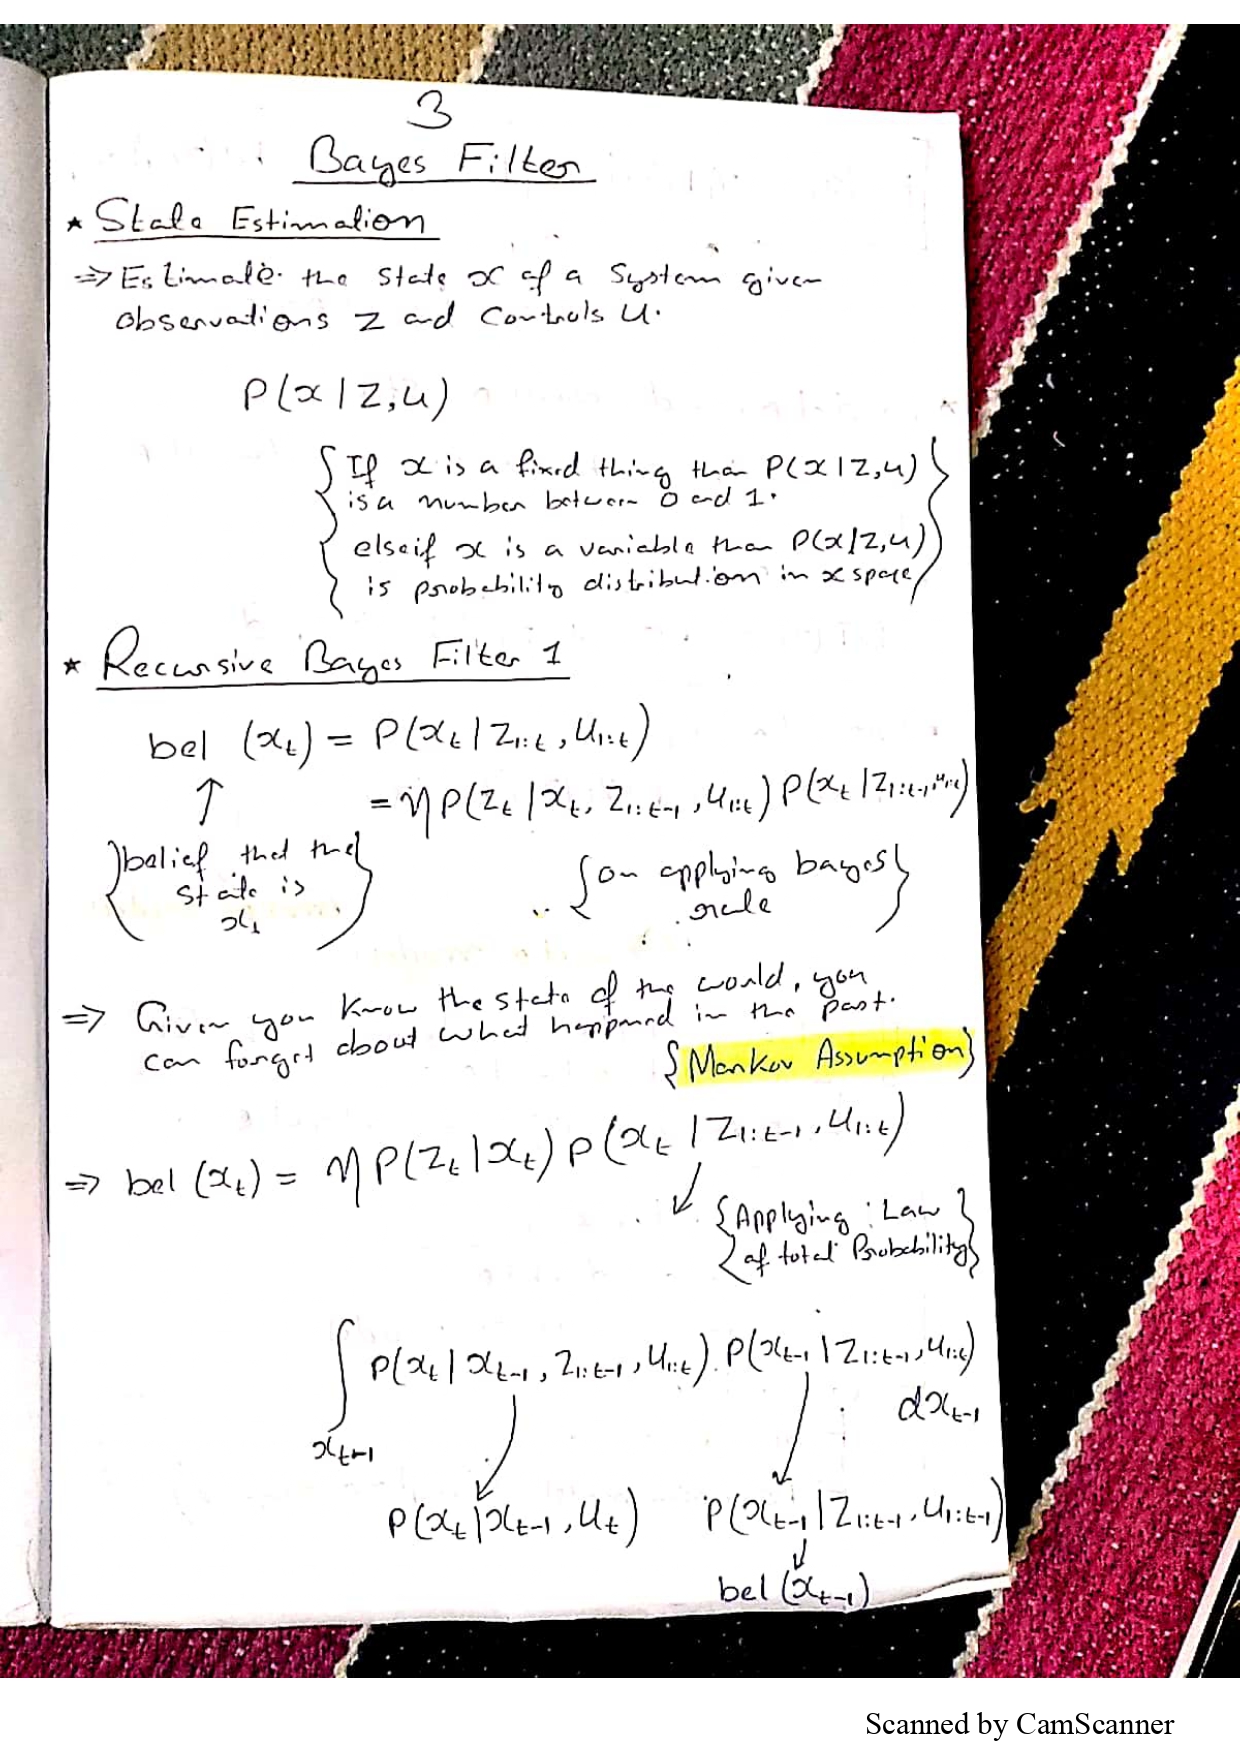 3
Bayes Filter
* State Estimation
⇒ Estimate the state x of a system given
observations z and controls u.
P(x | z, u)
{ If x is a fixed thing than P(x | z, u) }
is a number between 0 and 1.
elseif x is a variable than P(x | z, u)
is probability distribution in x space
* Recursive Bayes Filter 1
bel (x_t) = P(x_t | z_{1:t}, u_{1:t})
= η P(z_t | x_t, z_{1:t-1}, u_{1:t}) P(x_t | z_{1:t-1}, u_{1:t})
↑
{ belief that the
state is
x_t }
{ on applying bayes
rule }
⇒ Given you know the state of the world, you
can forget about what happened in the past.
{ Markov Assumption }
⇒ bel (x_t) = η P(z_t | x_t) P(x_t | z_{1:t-1}, u_{1:t})
{ Applying Law
of total Probability }
∫ P(x_t | x_{t-1}, z_{1:t-1}, u_{1:t}) . P(x_{t-1} | z_{1:t-1}, u_{1:t})
x_{t-1} dx_{t-1}
P(x_t | x_{t-1}, u_t) P(x_{t-1} | z_{1:t-1}, u_{1:t-1})
↓
bel (x_{t-1})
Scanned by CamScanner